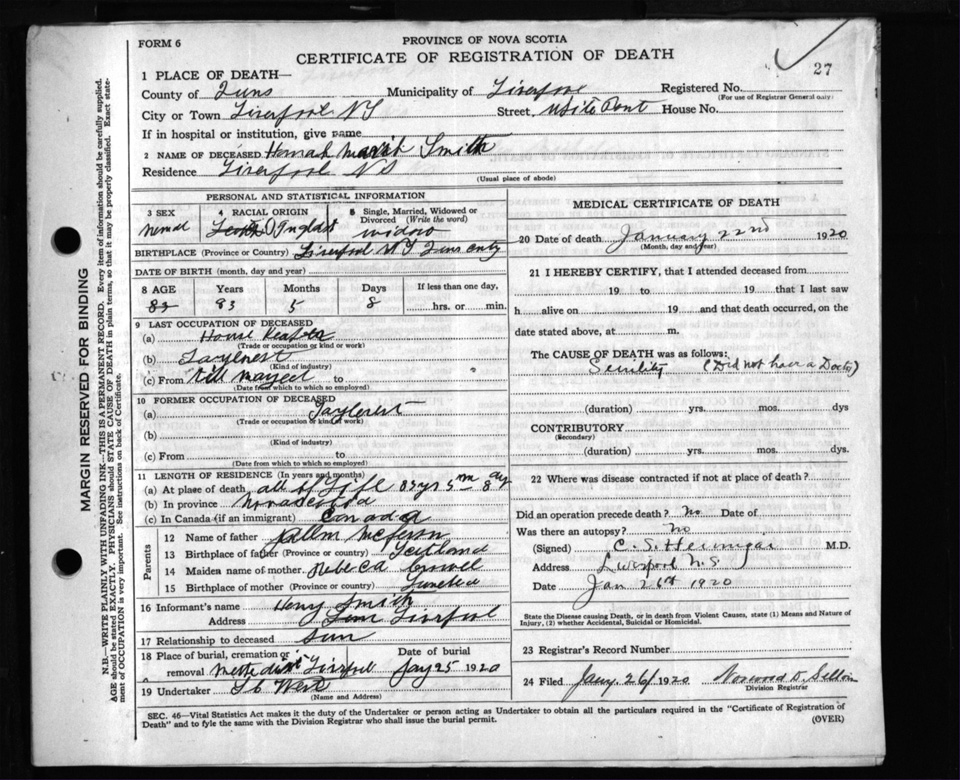 FORM 6
PROVINCE OF NOVA SCOTIA
CERTIFICATE OF REGISTRATION OF DEATH
27
1 PLACE OF DEATH—
County of Quns Municipality of Liverpool Registered No.
(For use of Registrar General only)
City or Town Liverpool NS Street, White Pont House No.
If in hospital or institution, give name
2 NAME OF DECEASED Hennah Smith
Residence Liverpool NS
(Usual place of abode)
PERSONAL AND STATISTICAL INFORMATION
3 SEX
4 RACIAL ORIGIN
5 Single, Married, Widowed or Divorced (Write the word)
widow
BIRTHPLACE (Province or Country) Liverpool NS Quns
DATE OF BIRTH (month, day and year)
8 AGE Years Months Days If less than one day,
83 83 5 8 hrs. or min.
9 LAST OCCUPATION OF DECEASED
(a) House
(Trade or occupation or kind or work)
(b)
(Kind of industry)
(c) From till to
(Date from which to which so employed)
10 FORMER OCCUPATION OF DECEASED
(a)
(Trade or occupation or kind of work)
(b)
(Kind of industry)
(c) From to
(Date from which to which so employed)
11 LENGTH OF RESIDENCE (In years and months)
(a) At place of death all of Life 83 yrs 5 m 8 dys
(b) In province Novascotia
(c) In Canada (if an immigrant) Canada
Parents
12 Name of father
13 Birthplace of father (Province or country) Scotland
14 Maiden name of mother Rebeca
15 Birthplace of mother (Province or country)
16 Informant's name Henry Smith
Address Liverpool
17 Relationship to deceased Sun
18 Place of burial, cremation or removal Methedist Liverpool
Date of burial
Jay 25 1920
19 Undertaker West
(Name and Address)
MEDICAL CERTIFICATE OF DEATH
20 Date of death January 22nd 1920
(Month, day and year)
21 I HEREBY CERTIFY, that I attended deceased from
19 to 19 that I last saw
h alive on 19 and that death occurred, on
date stated above, at m.
The CAUSE OF DEATH was as follows:
Senility (Did not have a Doctor)
(duration) yrs. mos. dys
CONTRIBUTORY
(Secondary)
(duration) yrs. mos. dys.
22 Where was disease contracted if not at place of death?
Did an operation precede death? No Date of
Was there an autopsy? No
(Signed) C. S. M.D.
Address Liverpool N.S.
Date Jan 26th 1920
State the Disease causing Death, or in death from Violent Causes, state (1) Means and Nature of
Injury, (2) whether Accidental, Suicidal or Homicidal.
23 Registrar's Record Number
24 Filed Jany. 26/1920
Division Registrar
SEC. 46—Vital Statistics Act makes it the duty of the Undertaker or person acting as Undertaker to obtain all the particulars required in the "Certificate of Registration of
Death" and to fyle the same with the Division Registrar who shall issue the burial permit.
(OVER)
MARGIN RESERVED FOR BINDING
N.B.—WRITE PLAINLY WITH UNFADING INK—THIS IS A PERMANENT RECORD. Every item of information should be carefully supplied.
AGE should be stated EXACTLY. PHYSICIANS should STATE CAUSE OF DEATH in plain terms, so that it may be properly classified. Exact state-
ment of OCCUPATION is very important. See instructions on back of Certificate.